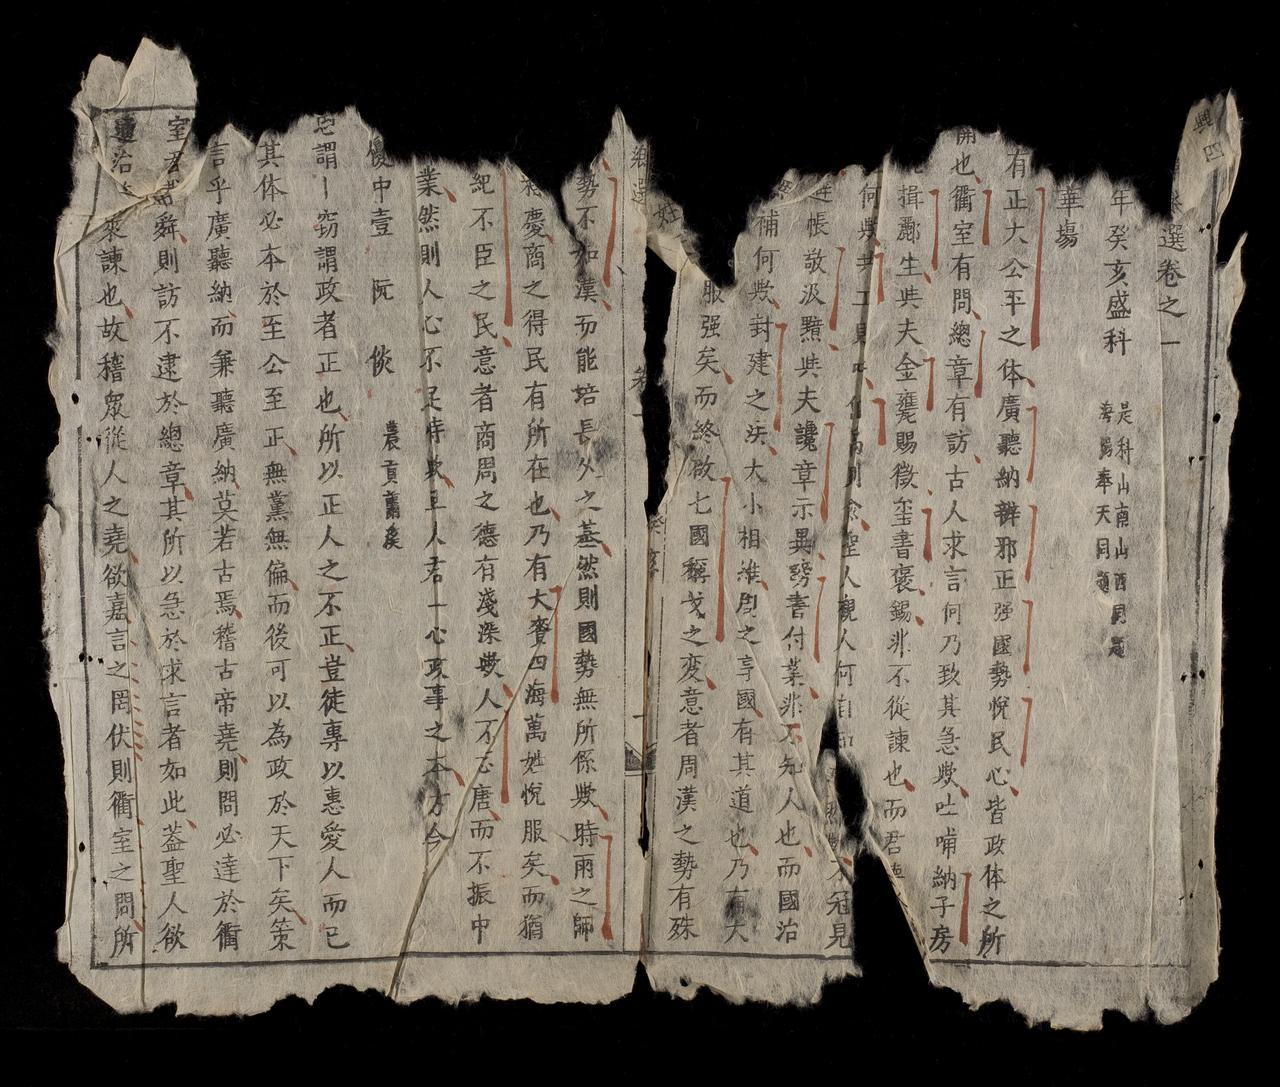 選卷之一
年癸亥盛科
是科山南山西同題
海陽奉天同題
華場
有正大公平之体廣聽納辦邪正强國勢悅民心皆政体之所
開也衢室有問總章有訪古人求言何乃致其急欤吐哺納子房
揖酈生共夫金甕賜徵璽書褒錫非不從諫也而君
何欤共工見聖人觀人何自
冠見
帳敬汲黯共夫讒章示異謗書付業非不知人也而國治
補何欤封建之法大小相維周之享國有其道也乃有大
服强矣而終啟七國稱戈之変意者周漢之勢有殊
鄉選
卷一
勢不如漢而能培長久之基然則國勢無所係欤時雨之師
慶商之得民有所在也乃有大賚四海萬姓悅服矣而猶
紀不臣之民意者商周之德有淺深欤人不心唐而不振中
業然則人心不足恃欤且人君一心政事之本方今
優中壹 阮 倓 農貢
謂 窃謂政者正也所以正人之不正豈徒專以惠愛人而已
其体必本於至公至正無黨無偏而後可以為政於天下矣策
言乎廣聽納而兼聽廣納莫若古焉稽古帝堯則問必達於衢
室君帝舜則訪不逮於總章其所以急於求言者如此葢聖人欲
治 來諫也故稽眾從人之堯欲嘉言之罔伏則衢室之問所